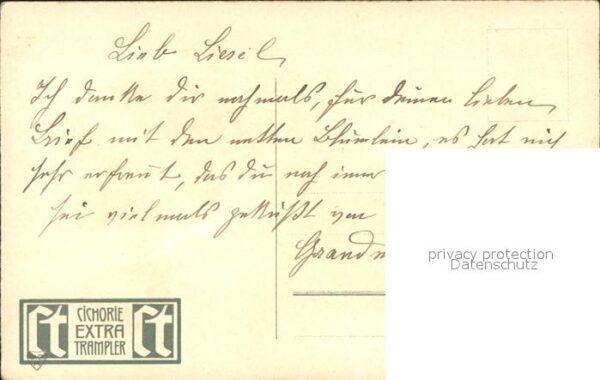 Lieb Liesel,
Ich danke dir nochmals, für deinen lieben
Brief mit den netten Blümlein, es hat mich
sehr erfreut, das du noch immer
sei vielmals geküßt von
Grandm
privacy protection
Datenschutz
Ct
CICHORIE
EXTRA
TRAMPLER
Ct